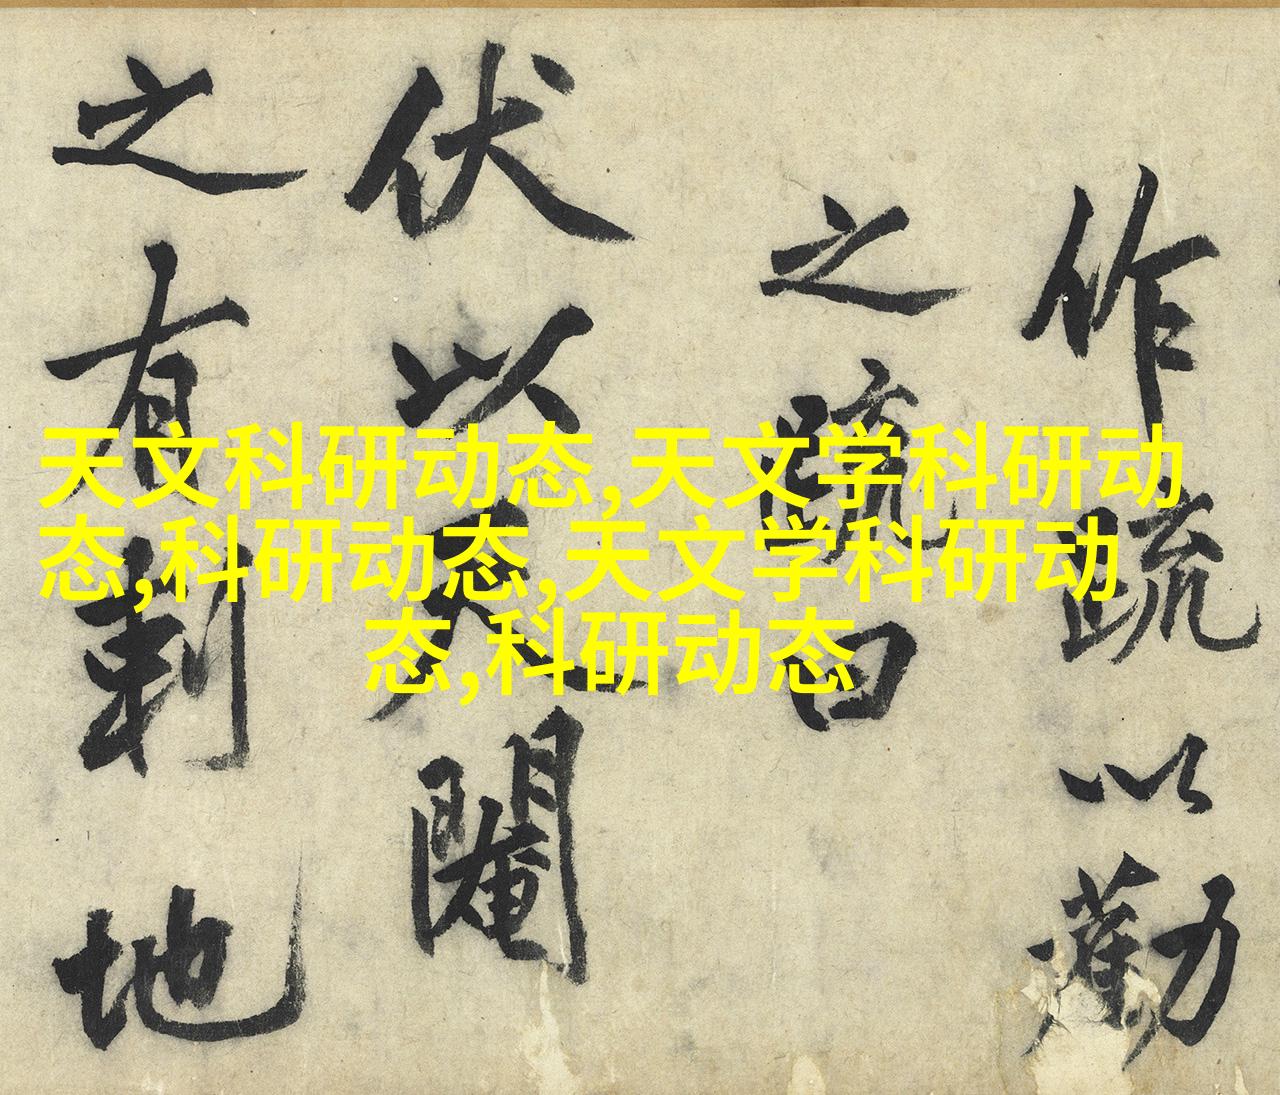 作疏以勸
之疏曰
伏以天閹
之有剩地
天文科研动态,天文学科研动
态,科研动态,天文学科研动
态,科研动态